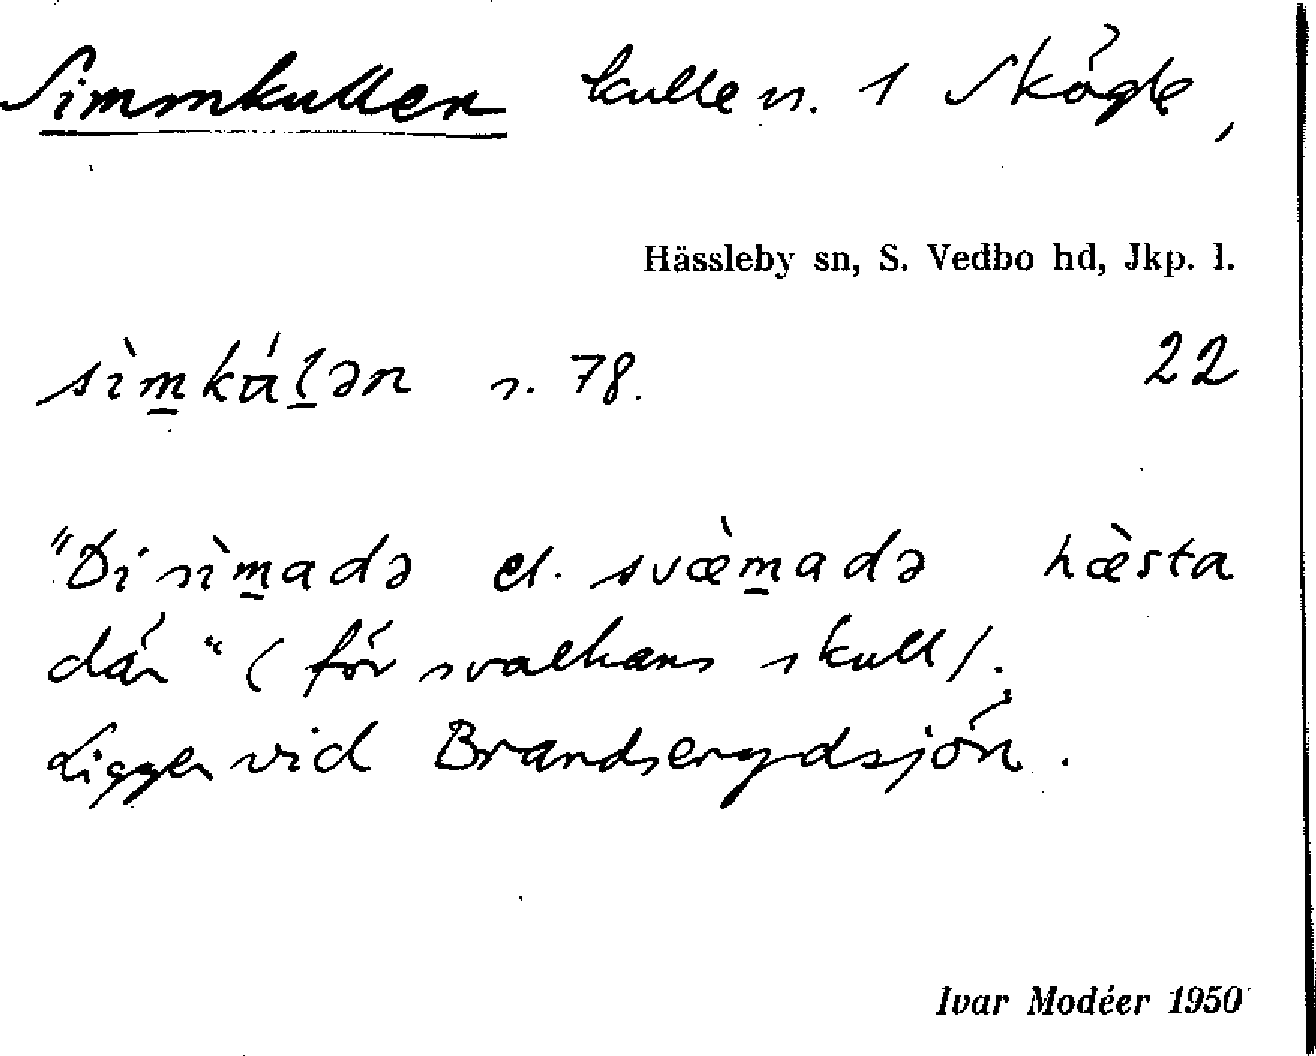 Simmkullen kulle n. 1 Skögle,
Hässleby sn, S. Vedbo hd, Jkp. l.
sìm̲kál̲ən s. 78. 22
"Di sìm̲adə el. svæ̀m̲adə hæ̀sta
där" (för svalkans skull).
Ligger vid Brandserydsjön.
Ivar Modéer 1950